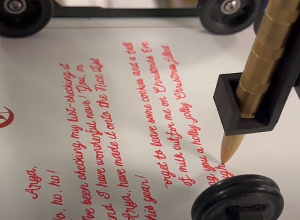 Arya,
Ho, ho, ho!
I've been checking my list-checking it
and I have wonderful news! You, m
Arya, have made it onto the Nice List
this year!
orget to leave some cookies and a tall
of milk out for me on Christmas Eve
you a holly jolly Christmas filled